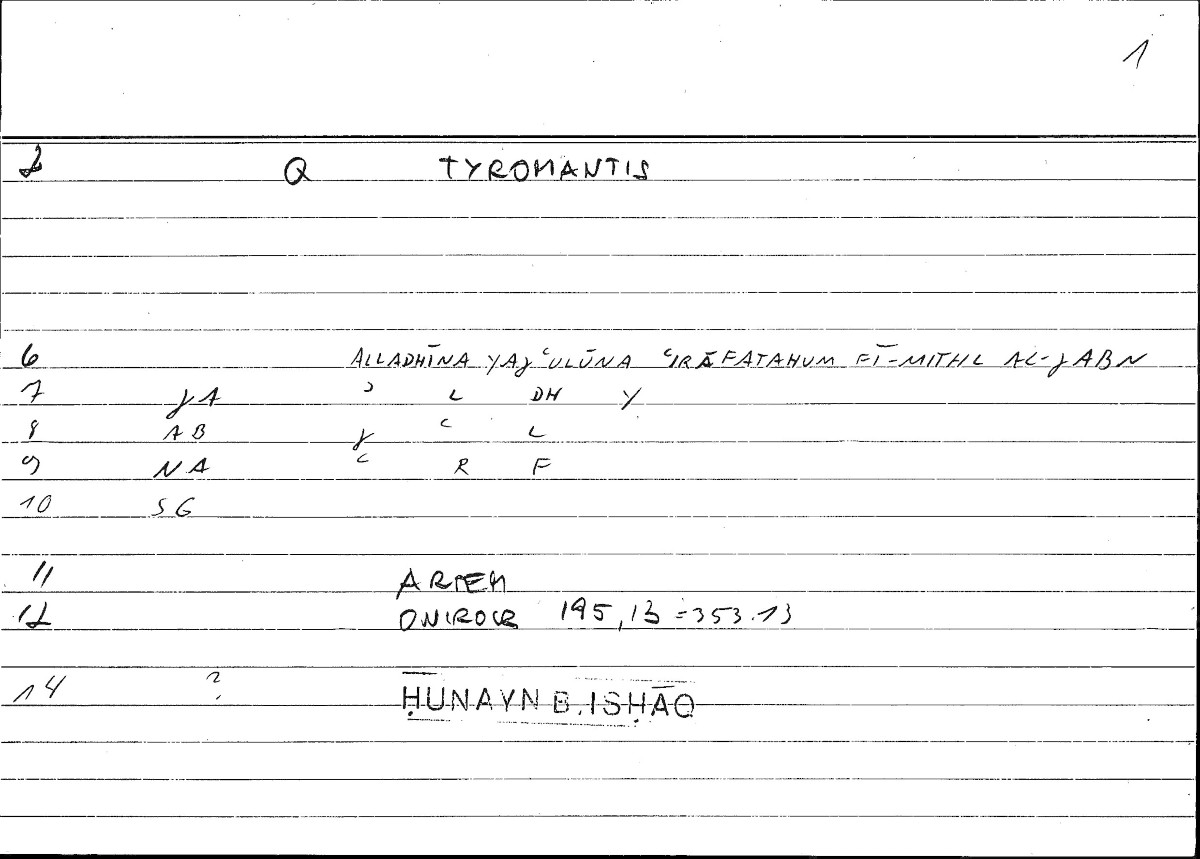 1
2 Q TYROMANTIS
6 ALLADHĪNA YAJʿULŪNA ʿIRĀFATAHUM FĪ-MITHL AL-JABN
7 JA ʾ L DH Y
8 AB J ʿ L
9 NA ʿ R F
10 SG
11 ARTEM
12 ONIROCR 195,13 =353.13
14 ? ḤUNAYN B. ISḤĀQ